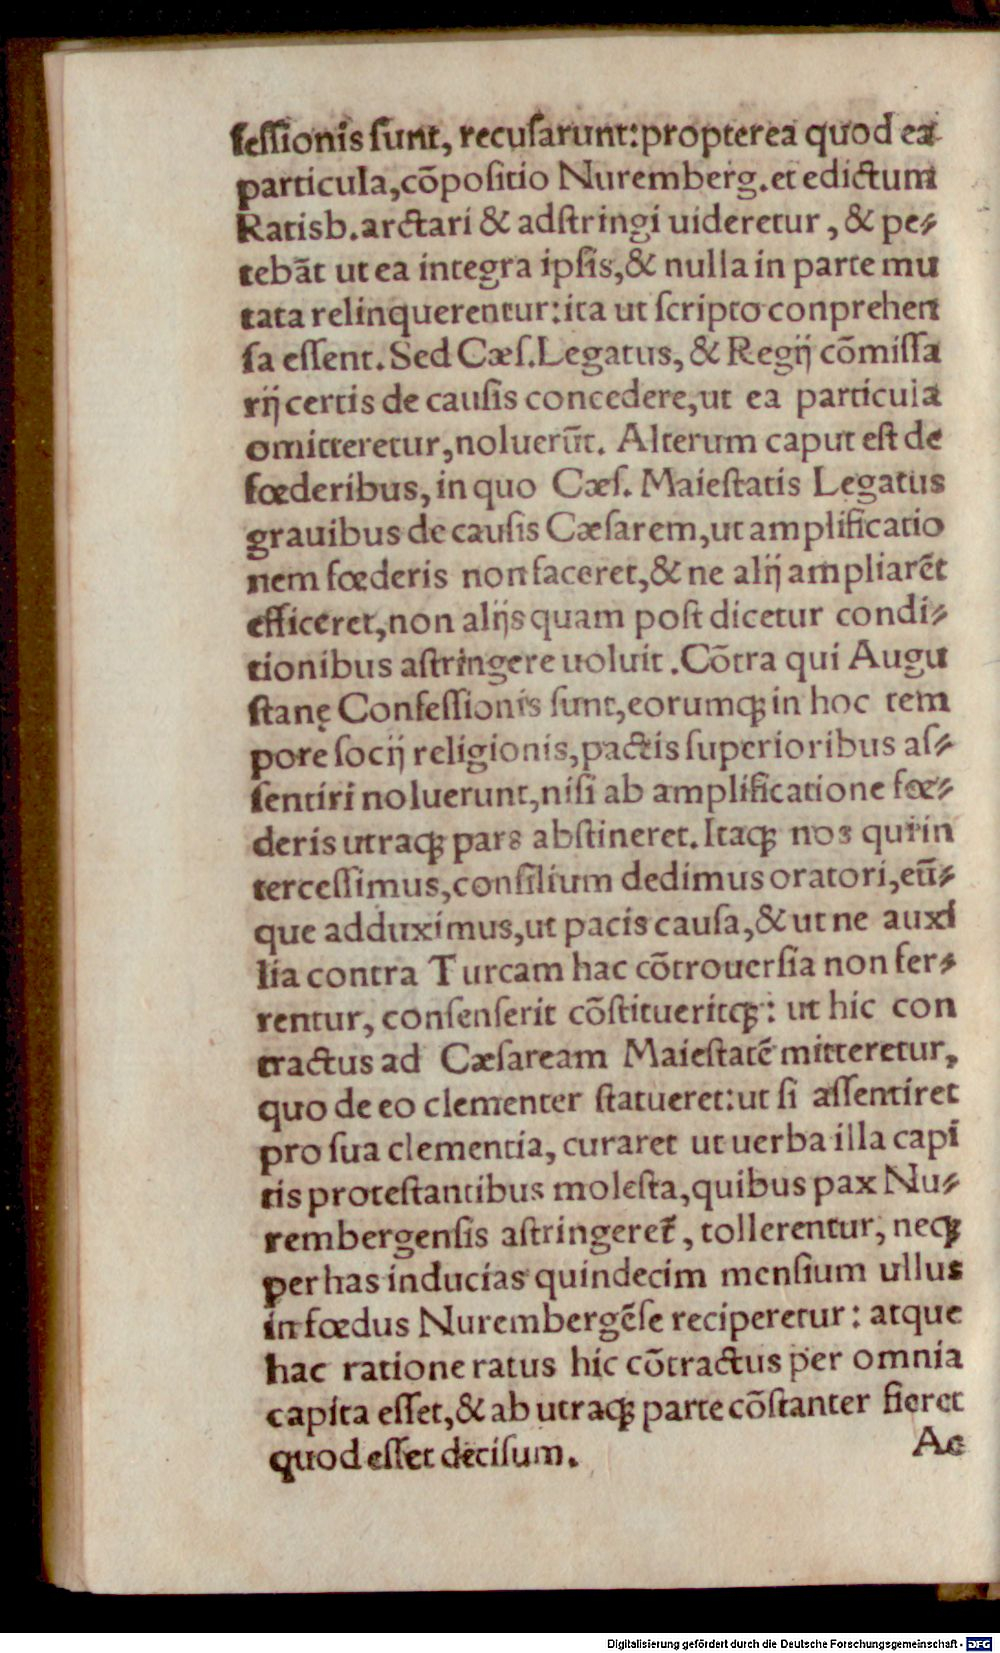 feſſionis ſunt, recuſarunt: propterea quod ea
particula, cõpoſitio Nuremberg. et edictum
Ratisb. arctari & adſtringi uideretur, & pe⸗
tebãt ut ea integra ipſis, & nulla in parte mu
tata relinquerentur: ita ut ſcripto conprehen
ſa eſſent. Sed Cæſ. Legatus, & Regij cõmiſſa
rij certis de cauſis concedere, ut ea particula
omitteretur, noluerũt. Alterum caput eſt de
fœderibus, in quo Cæſ. Maieſtatis Legatus
grauibus de cauſis Cæſarem, ut amplificatio
nem fœderis non faceret, & ne alij ampliarẽt
efficeret, non alijs quam poſt dicetur condi⸗
tionibus aſtringere uoluit. Cõtra qui Augu
ſtanę Confeſſionis ſunt, eorumꝗ; in hoc tem
pore ſocij religionis, pactis ſuperioribus aſ⸗
ſentiri noluerunt, niſi ab amplificatione fœ⸗
deris utraꝗ; pars abſtineret. Itaꝗ; nos qui in
terceſſimus, conſilium dedimus oratori, eũ⸗
que adduximus, ut pacis cauſa, & ut ne auxi
lia contra Turcam hac cõtrouerſia non fer⸗
rentur, conſenſerit cõſtitueritꝗ;: ut hic con
tractus ad Cæſaream Maieſtatẽ mitteretur,
quo de eo clementer ſtatueret: ut ſi aſſentiret
pro ſua clementia, curaret ut uerba illa capi
tis proteſtantibus moleſta, quibus pax Nu⸗
rembergenſis aſtringeret̃, tollerentur, neꝗ;
per has inducias quindecim menſium ullus
in fœdus Nurembergẽſe reciperetur: atque
hac ratione ratus hic cõtractus per omnia
capita eſſet, & ab utraꝗ; parte cõſtanter fieret
quod eſſet deciſum.
Ac
Digitalisierung gefördert durch die Deutsche Forschungsgemeinschaft - DFG